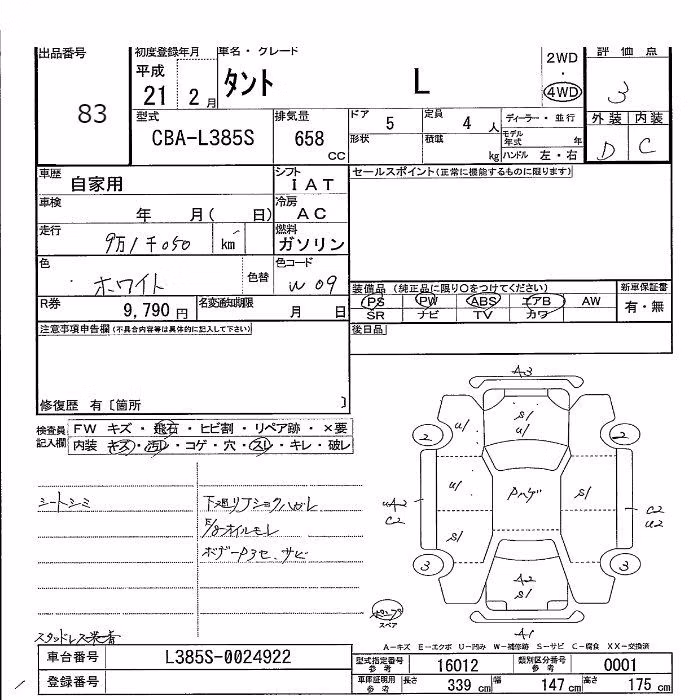 出品番号 83
初度登録年月 平成 21 2月
車名・グレード タント L
2WD・4WD
評価点 3
型式 CBA-L385S
排気量 658 CC
ドア 5
定員 4 人
ディーラー・並行
形状
積載 kg
モデル年式 年
ハンドル 左・右
外装 D
内装 C
車歴 自家用
シフト IAT
セールスポイント(正常に機能するものに限ります)
車検 年 月( 日)
冷房 AC
走行 9万1千050 km
燃料 ガソリン
色 ホワイト 色替
色コード W09
装備品 (純正品に限り〇をつけてください)
新車保証書
PS PW ABS エアB AW
有・無
SR ナビ TV カワ
R券 9,790円
名変通知期限 月 日
後日品
注意事項申告欄(不具合内容等は具体的に記入して下さい)
修復歴 有〔箇所 〕
検査員記入欄
FW キズ・飛石・ヒビ割・リペア跡・×要
内装 キズ・汚レ・コゲ・穴・スレ・キレ・破レ
シートシミ
下廻リ
オイルモレ
サビ
A3
S1
U1
U1
2
2
U1
S1
C2
C2
U2
S1
3
3
A2
S1
A1
スペア
A-キズ E-エクボ U-凹み W-補修跡 S-サビ C-腐食 XX-交換済
車台番号 L385S-0024922
登録番号
型式指定番号 参考 16012
類別区分番号 参考 0001
車庫証明用 参考 長さ 339 cm 幅 147 cm 高さ 175 cm